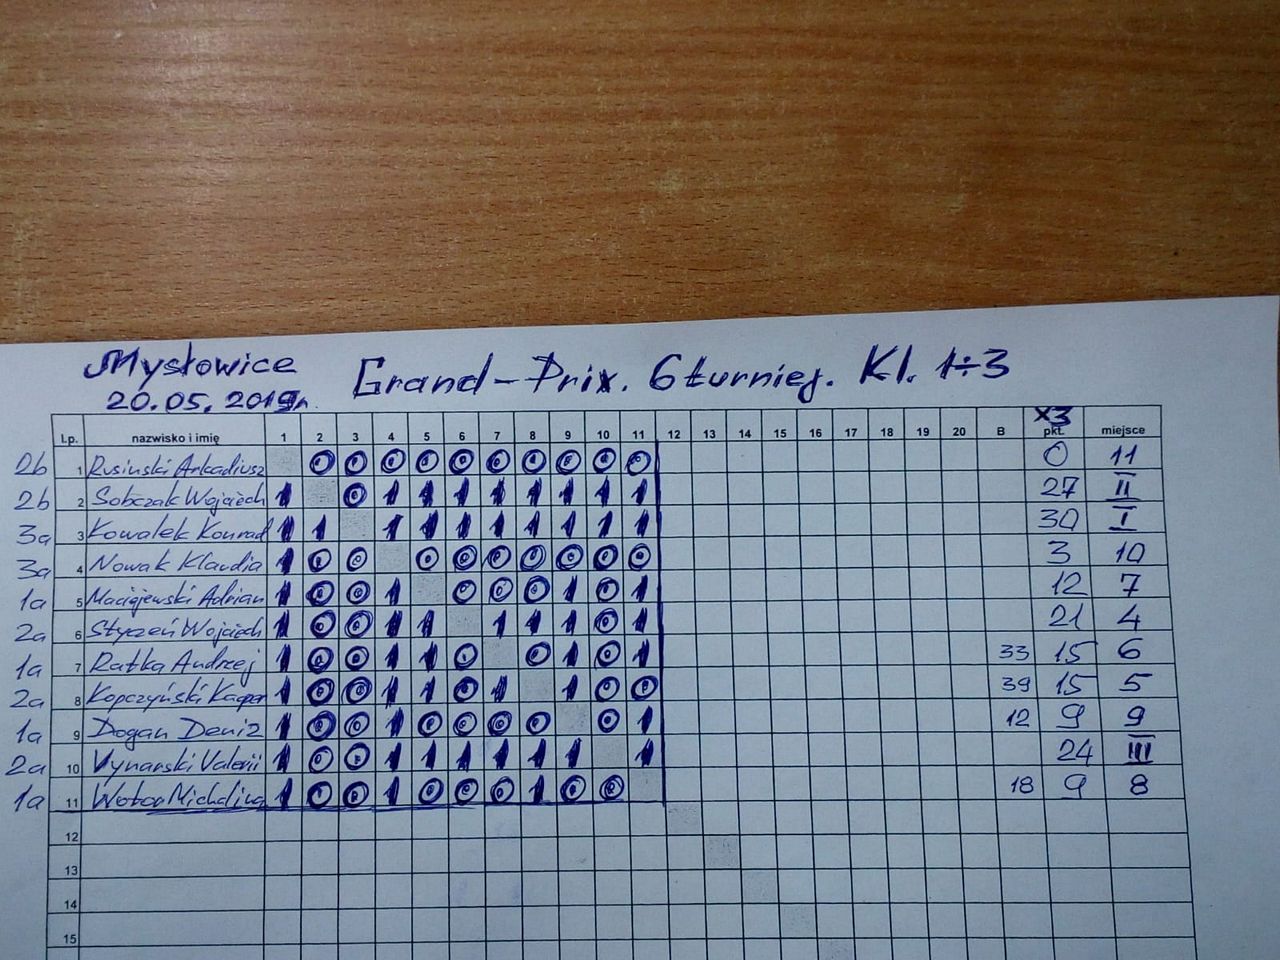 Mysłowice Grand-Prix. 6 turniej. Kl. 1÷3
20.05.2019r.
x3
Lp. nazwisko i imię 1 2 3 4 5 6 7 8 9 10 11 12 13 14 15 16 17 18 19 20 B pkt. miejsce
2b 1 Rusinski Arkadiusz 0 0 0 0 0 0 0 0 0 0 0 11
2b 2 Sobczak Wojciech 1 0 1 1 1 1 1 1 1 1 27 II
3a 3 Kowalek Konrad 1 1 1 1 1 1 1 1 1 1 30 I
3a 4 Nowak Klaudia 1 0 0 0 0 0 0 0 0 0 3 10
1a 5 Maciejewski Adrian 1 0 0 1 0 0 0 1 0 1 12 7
2a 6 Styczeń Wojciech 1 0 0 1 1 1 1 1 0 1 21 4
1a 7 Ratka Andrzej 1 0 0 1 1 0 0 1 0 1 33 15 6
2a 8 Kopczyński Kacper 1 0 0 1 1 0 1 1 0 0 39 15 5
1a 9 Dogan Deniz 1 0 0 1 0 0 0 0 0 1 12 9 9
2a 10 Vynarski Valerii 1 0 0 1 1 1 1 1 1 1 24 III
1a 11 1 0 0 1 0 0 0 1 0 0 18 9 8
12
13
14
15